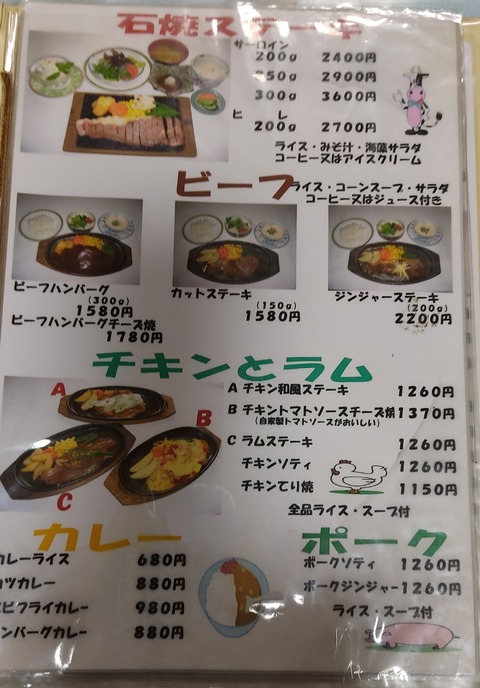 石焼ステーキ
サーロイン
200g 2400円
250g 2900円
300g 3600円
ヒレ
200g 2700円
ライス・みそ汁・海藻サラダ
コーヒー又はアイスクリーム
ビーフ
ライス・コーンスープ・サラダ
コーヒー又はジュース付き
ビーフハンバーグ
(300g)
1580円
ビーフハンバーグチーズ焼
1780円
カットステーキ
(150g)
1580円
ジンジャーステーキ
(200g)
2200円
チキンとラム
A
B
C
A チキン和風ステーキ 1260円
B チキントマトソースチーズ焼 1370円
(自家製トマトソースがおいしい)
C ラムステーキ 1260円
チキンソティ 1260円
チキンてり焼 1150円
全品ライス・スープ付
カレー
カレーライス 680円
カツカレー 880円
ビフライカレー 980円
ンバーグカレー 880円
ポーク
ポークソティ 1260円
ポークジンジャー 1260円
ライス・スープ付